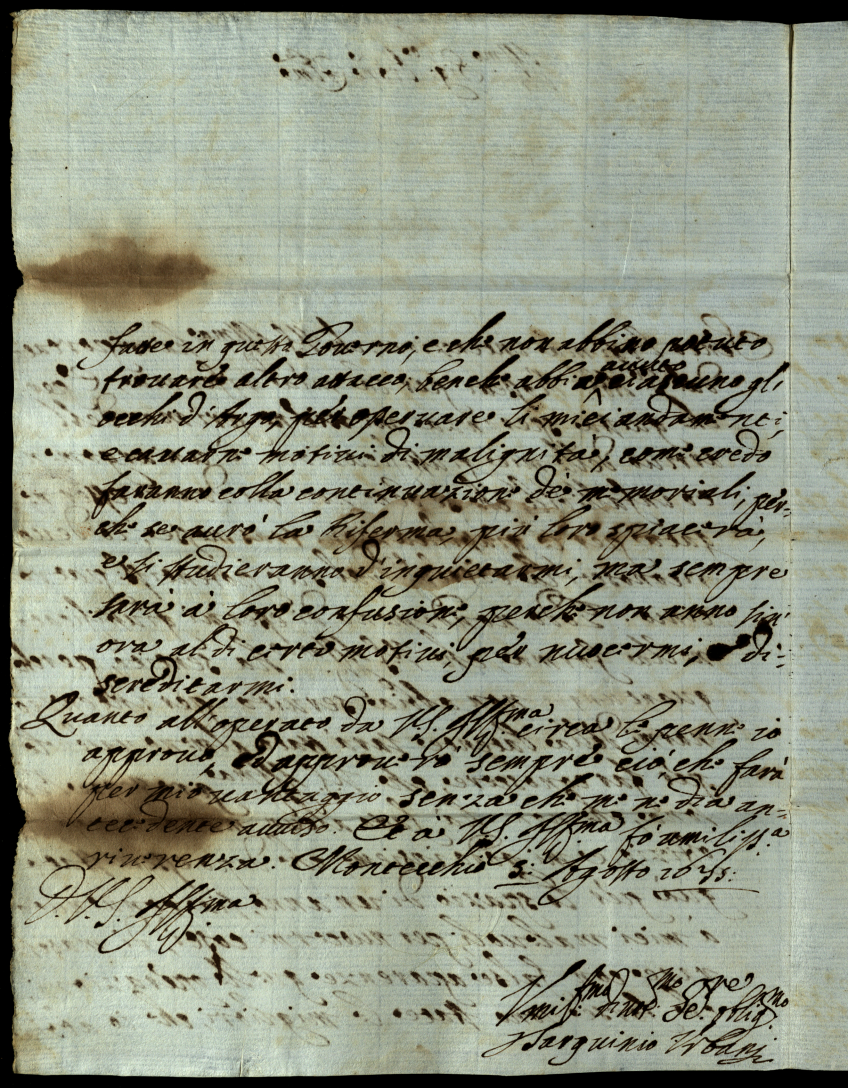 fusse in questo Gouerno, e che non abbino potuto
trouare altro attacco, benche abbino auuto gli
occhi d'Argo, per osseruare li miei andamenti,
e cauarne motiui di malignità, come credo
faranno colla continuazione de memoriali, per-
che se aurò la Riferma, più loro spiacerà,
e si studieranno d'inquietarmi, ma sempre
sarà à loro confusione, perche non anno sin'
ora al di certo motiui per nuocermi, di-
screditarmi.
Quanto all'operato da VS. Illma circa le penne io
approuo, ed approuerò sempre ciò, che farà
per mio uantaggio senza che me ne dia an-
tecedente auuiso. Et à VS. Illma fò umiliss.a
riuerenza. Montecchio 3. Agosto
D. V.S. Illma
Umiliss.mo Diuot.mo Se.re oblig.mo
Tarquinio Urbani